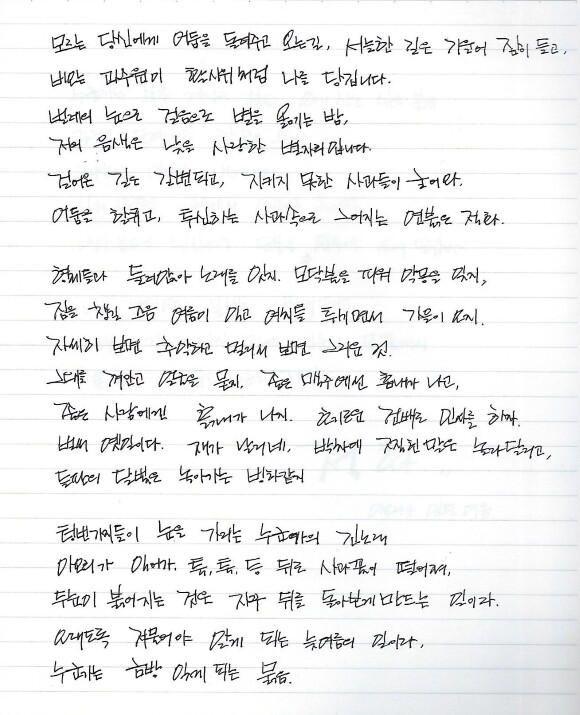 모르는 당신에게 어둠을 들려주고 오는길, 서늘한 길은 가운이 짙이 들고,
비오는 과수원이 환상처럼 나를 당깁니다.
벌레의 눈으로 걸음으로 별을 옮기는 밤,
저의 음색은 낮을 사랑한 별자리입니다.
걸어온 길은 강변되고, 지키지 못한 사과들이 놓여와.
어둠을 할퀴고, 투신하는 사과속으로 그어지는 연붉은 적화.
형제들과 둘레앉아 노래를 잇지. 모닥불을 피워 악몽을 잊지,
잠을 청할 즈음 여름이 악고 여치를 투기면서 가을이 오지.
자세히 보면 추악하고 멀리서 보면 그리운 것.
그대를 껴안고 얼굴을 묻지. 좋은 맥주에선 흙내가 나고,
좋은 사람에겐 흙내가 나지. 호기로운 건배로 인사를 하자.
벌써 옛일이다. 재가 날리네, 박차에 짓찧긴 밤은 놀라달리고,
들판의 달빛은 녹아가는 빙하같지
텅빈가지들이 눈을 가리는 누군가의 긴노래
마무리가 있어야. 툭, 툭, 등 뒤로 사과꽃이 떨어져,
두 눈이 붉어지는 것은 자꾸 뒤를 돌아보게 만드는 일이라.
오래도록 저물어야 알게 되는 늦여름의 일이라,
누군가는 금방 잊게 되는 붉음.